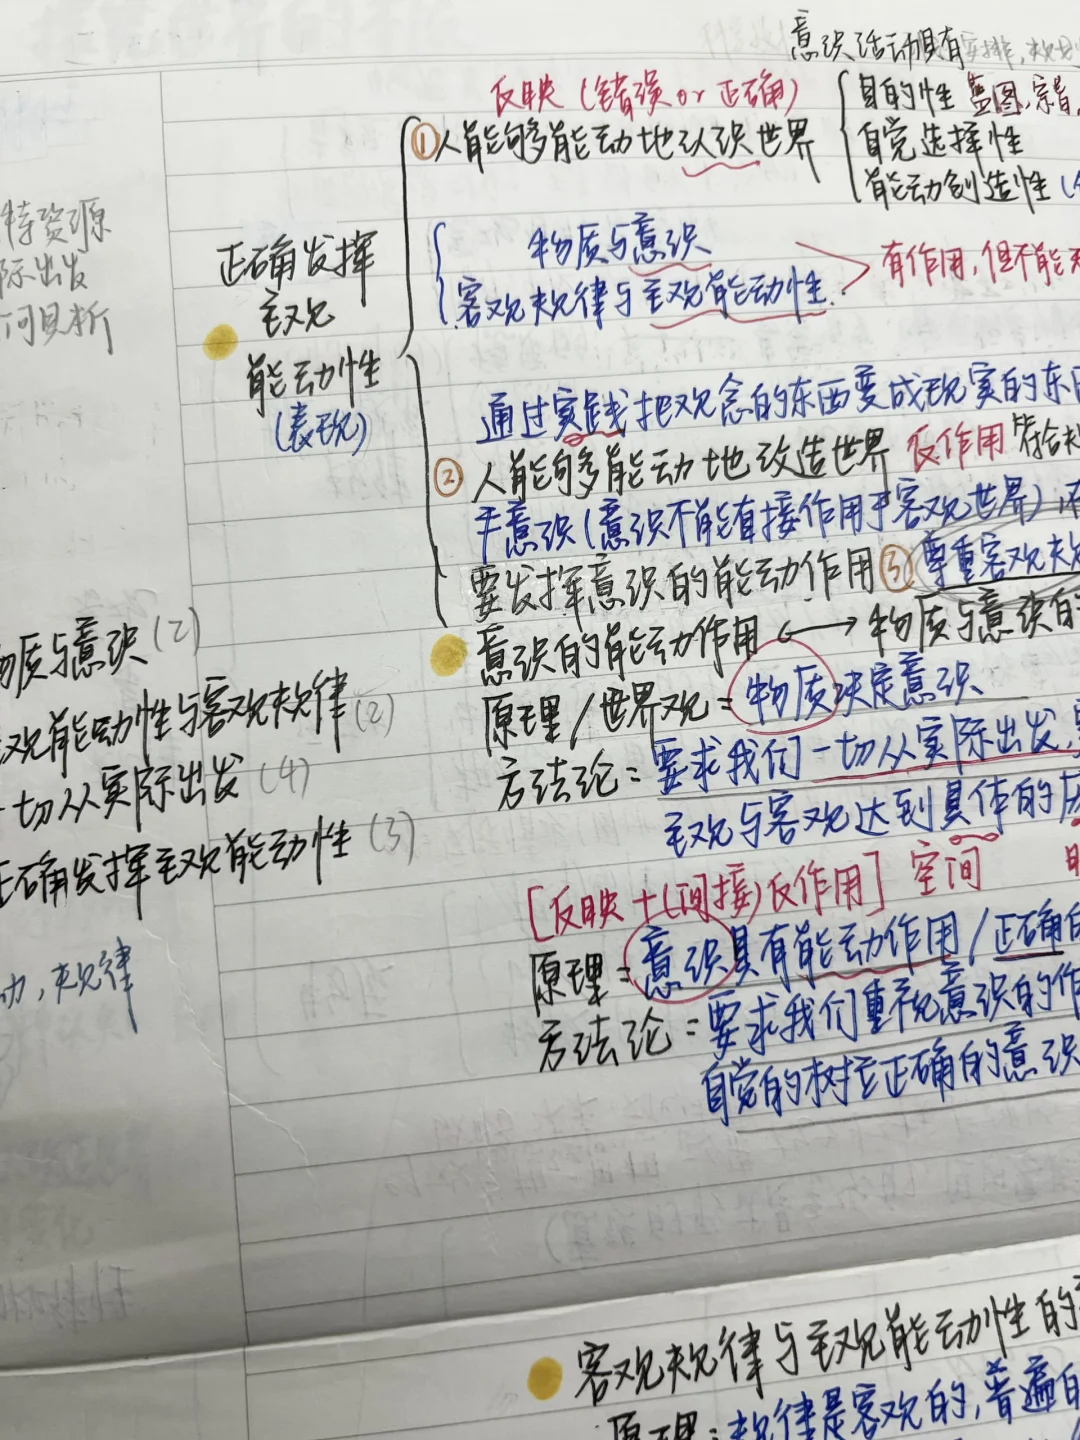 意识活动具有
反映（错误or正确）
目的性 蓝图，宗旨
①人能够能动地认识世界
自觉选择性
能动创造性
特资源
际出发
问具析
正确发挥
主观
能动性
（表现）
物质与意识
客观规律与主观能动性
有作用，但不能
通过实践把观念的东西变成现实的东
②人能够能动地改造世界 反作用 符合
于意识（意识不能直接作用于客观世界）
要发挥意识的能动作用③尊重客观规
意识的能动作用 ⟷ 物质与意识的
原理/世界观=物质决定意识
方法论：要求我们一切从实际出发，
主观与客观达到具体的历
物质与意识（2）
主观能动性与客观规律（2）
一切从实际出发（4）
正确发挥主观能动性（3）
动，规律
［反映+（间接）反作用］ 空间 时
原理=意识具有能动作用/正确的
方法论：要求我们重视意识的作
自觉的树立正确的意识
客观规律与主观能动性的
原理：规律是客观的，普遍的